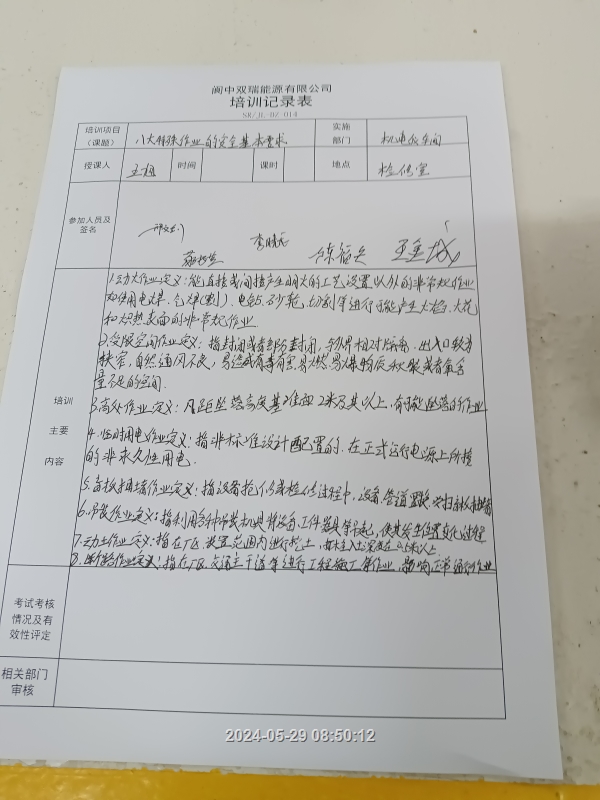 阆中双瑞能源有限公司
培训记录表
SR/JL-DZ-014
培训项目
(课题)
八大特殊作业的安全基本要求
实施
部门
机电仪车间
授课人
时间
课时
地点
检修室
参加人员及
签名
培训
主要
内容
1.动火作业定义:能直接或间接产生明火的工艺设置以外的非常规作业
如使用电焊、气焊(割)、电钻、砂轮、切割等进行可能产生火焰、火花
和炽热表面的非常规作业
2.受限空间作业定义:指封闭或者部分封闭,与外界相对隔离,出入口较为
狭窄,自然通风不良,易造成有毒有害、易燃易爆物质积聚或者氧含
量不足的空间.
3.高处作业定义:凡距坠落高度基准面2米及其以上,有可能坠落的作业
4.临时用电作业定义:指非标准设计配置的.在正式运行电源上所接
的非永久性用电.
5.盲板抽堵作业定义:指设备抢修或检修过程中,设备、管道
6.吊装作业定义:指利用各种吊装机具将设备、工件、器具等吊起,使其发生位置变化过程
7.动土作业定义:指在厂区、装置范围内进行挖土,
8.断路作业定义:指在厂区交通主干道等进行工程施工等作业,影响正常通行作业
考试考核
情况及有
效性评定
相关部门
审核
2024-05-29 08:50:12